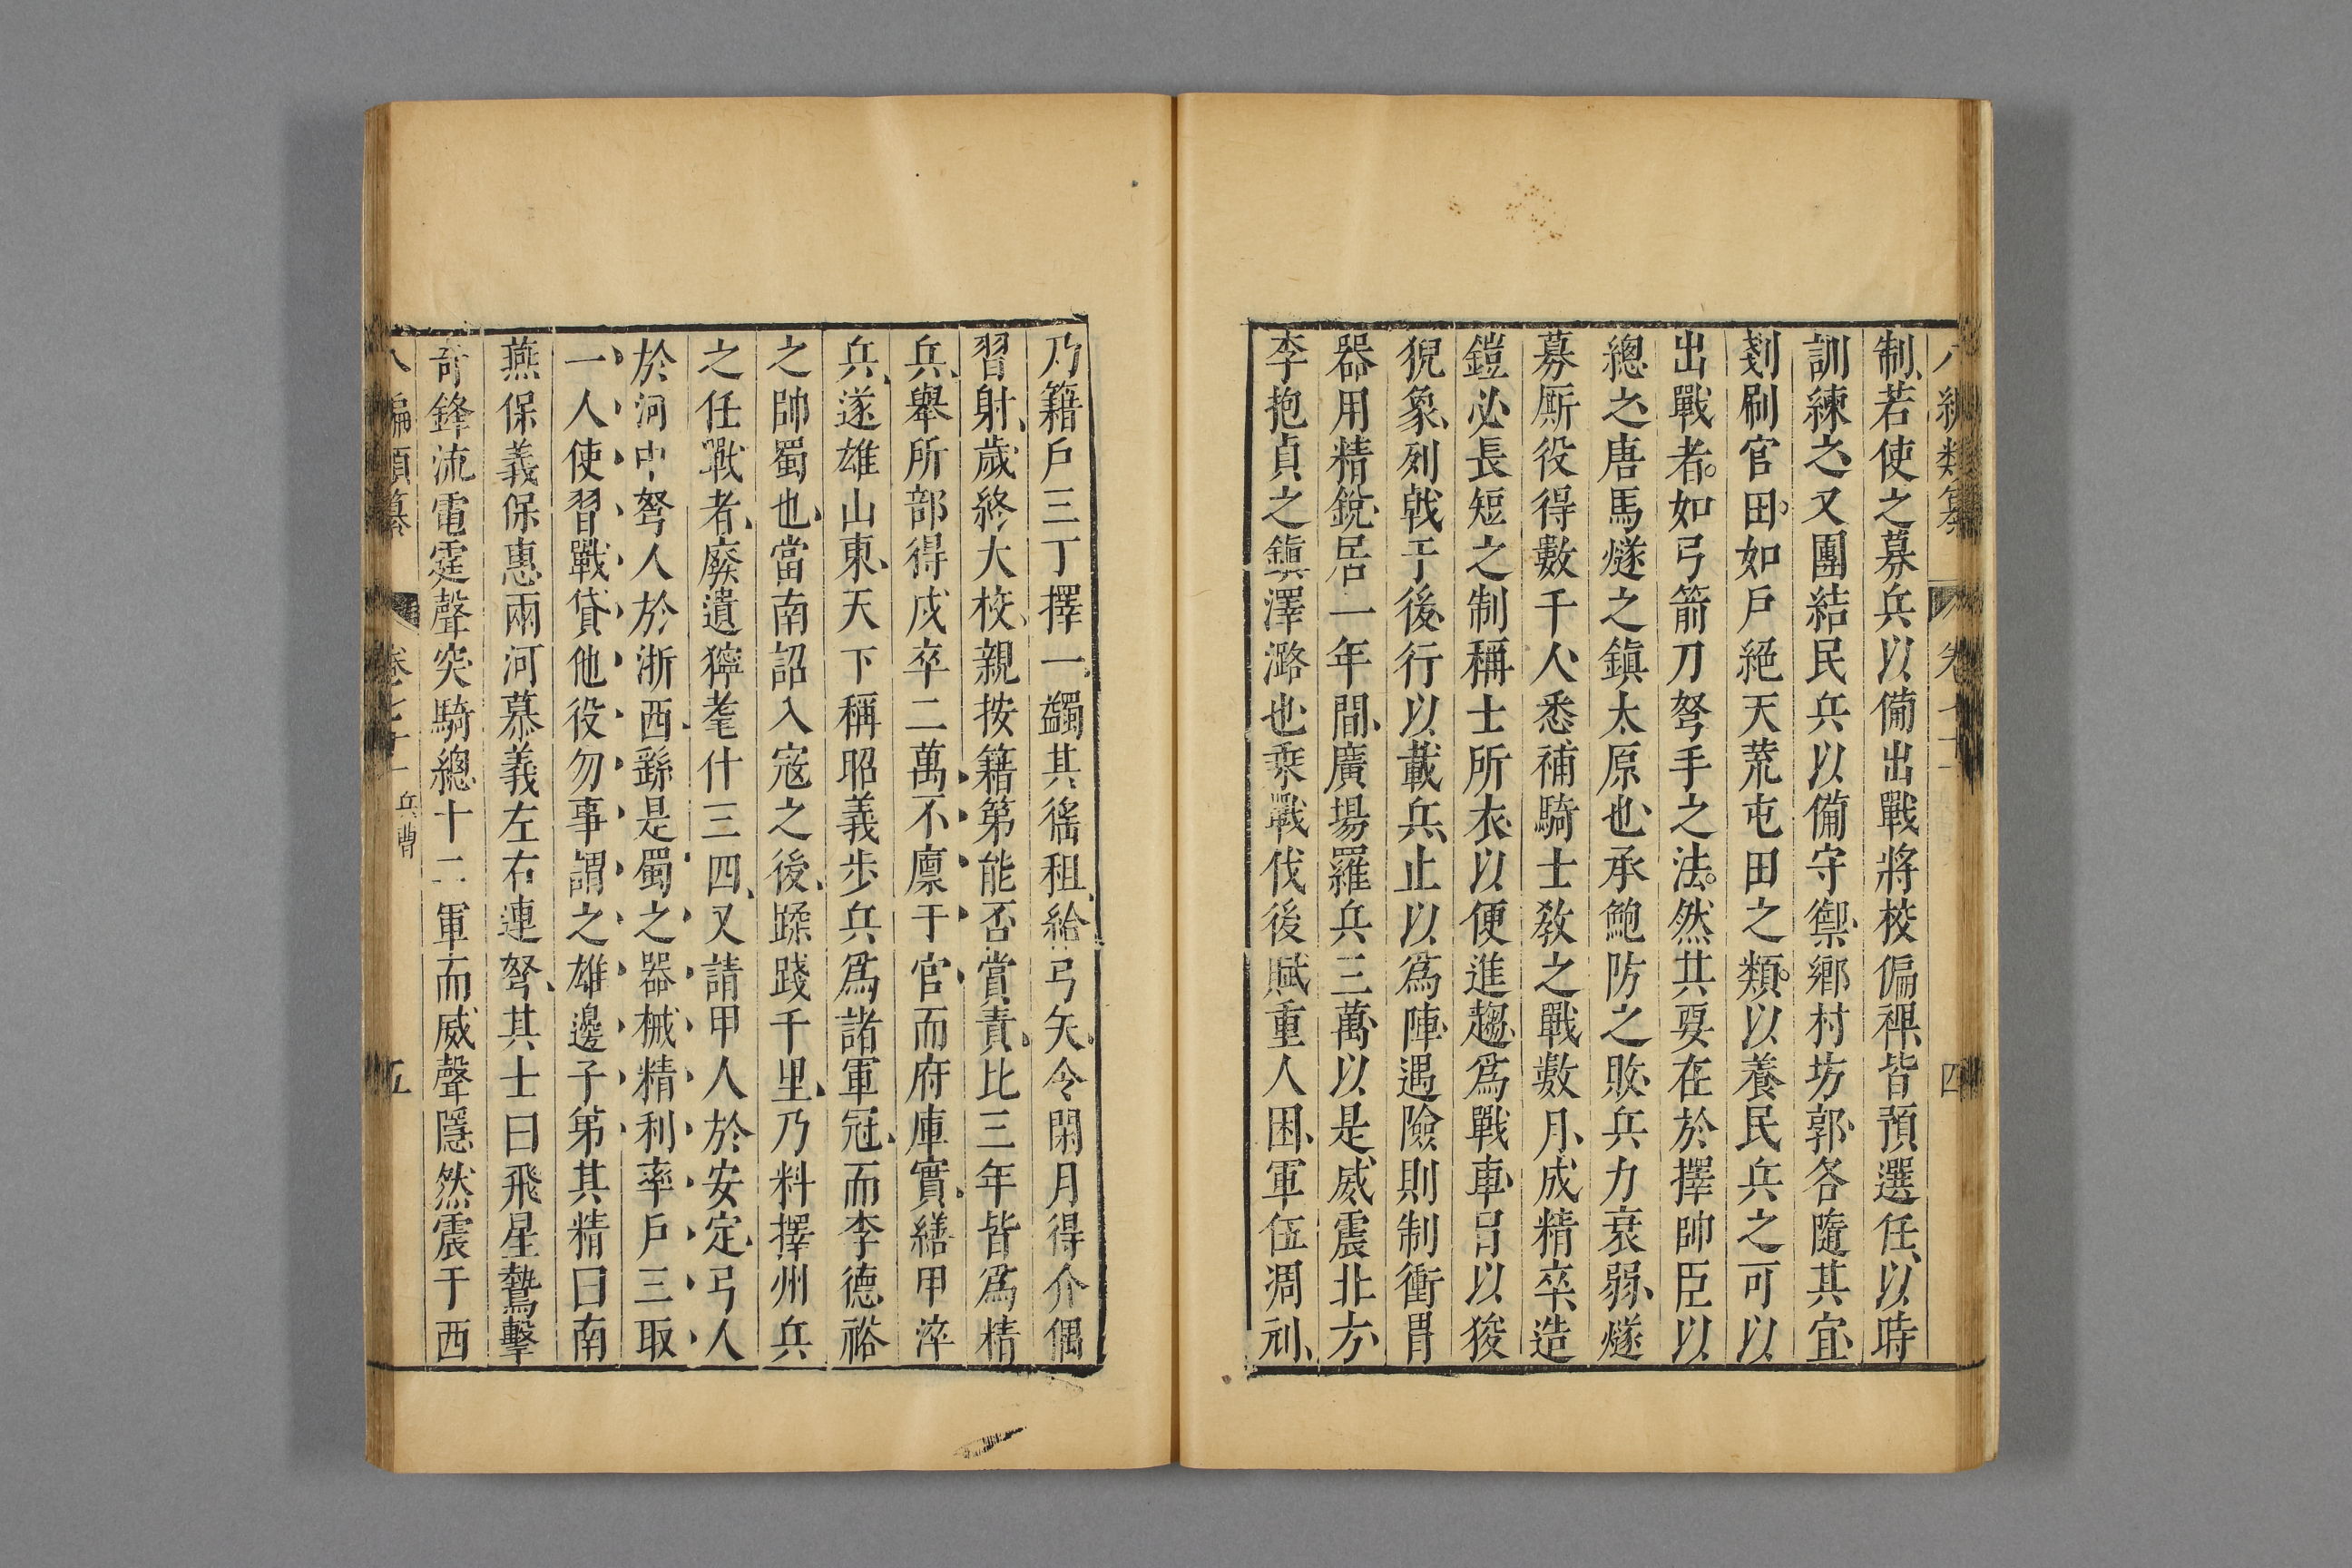 制若使之募兵以備出戰將校偏裨皆預選任以時
訓練之又團結民兵以備守禦鄉村坊郭各隨其宜
剗刷官田如戶絕天荒屯田之類以養民兵之可以
出戰者如弓箭刀弩手之法然其要在於擇帥臣以
總之唐馬燧之鎮太原也承鮑防之敗兵力衰弱燧
募厮役得數千人悉補騎士教之戰數月成精卒造
鎧必長短之制稱士所衣以便進趨爲戰車冒以狻
猊象列戟于後行以載兵止以爲陣遇險則制衝冐
器用精銳居一年間廣場羅兵三萬以是威震北方
李抱貞之鎮澤潞也乘戰伐後賦重人困軍伍凋刓
乃籍戶三丁擇一蠲其徭租給弓矢令閑月得介偶
習射歲終大校親按籍第能否賞責比三年皆爲精
兵舉所部得戍卒二萬不廩于官而府庫實繕甲淬
兵遂雄山東天下稱昭義步兵爲諸軍冠而李德裕
之帥蜀也當南詔入寇之後蹂踐千里乃料擇州兵
之任戰者廢遺獰耄什三四又請甲人於安定弓人
於河中弩人於浙西繇是蜀之器械精利率戶三取
一人使習戰貸他役勿事謂之雄邊子弟其精曰南
燕保義保惠兩河慕義左右連弩其士曰飛星鷙擊
奇鋒流電霆聲突騎總十二軍而威聲隱然震于西
八編類纂 卷七十一 兵曹 五